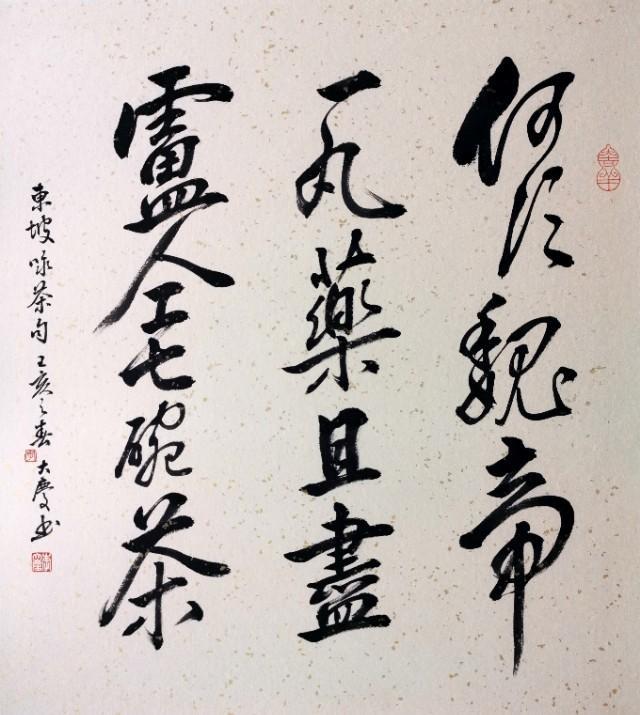 何須魏帝
一丸藥且盡
盧仝七碗茶
東坡咏茶句己亥之春大慶书